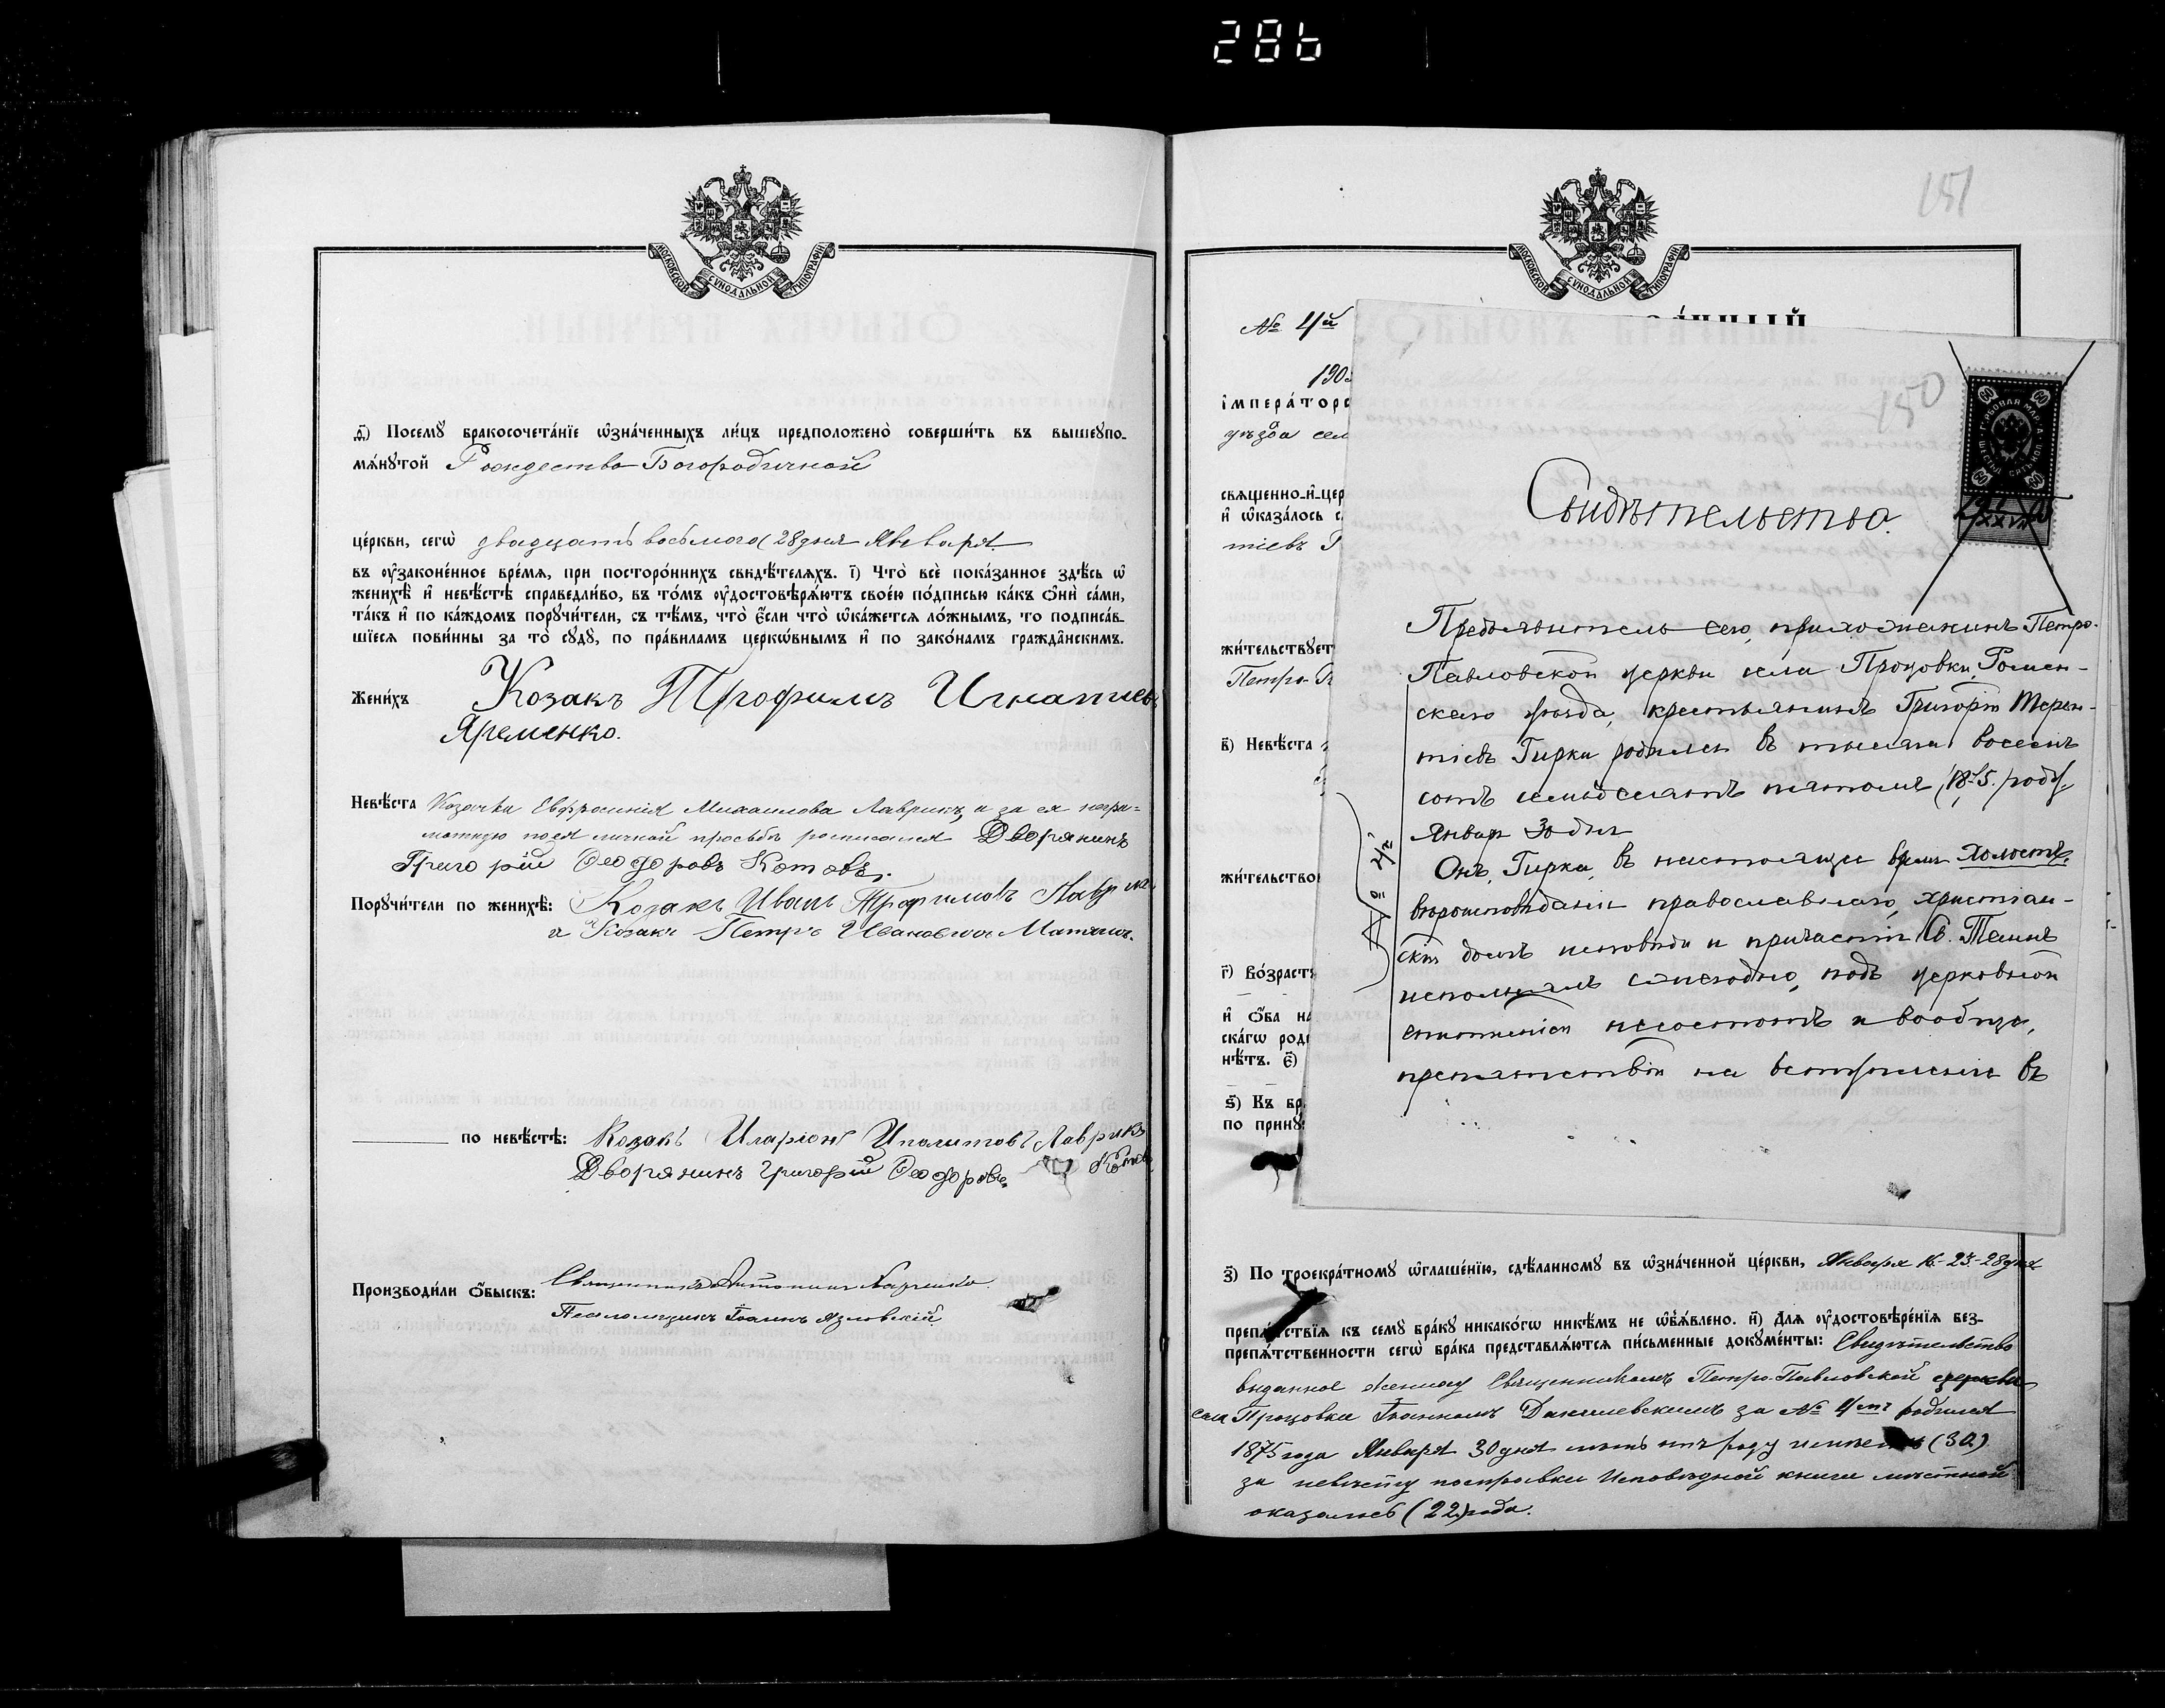 286
МОСКОВСКОЙ СУНОДАЛЬНОЙ ТИПОГРАФІИ
ѳ҃) Посемꙋ бракосочета́нїе ѡ҆зна́ченныхъ ли́цъ предположено̀ соверши́ть въ вышеꙋпо-
мѧ́нꙋтой Рождество-Богородичной
це́ркви, сегѡ̀ двадцать восьмого (28 дня Января
въ ᲂу҆законе́нное вре́мѧ, при посторо́ннихъ свидѣ́телѧхъ. і҃) Что̀ всѐ пока́занное здѣ́сь ѡ҆
женихѣ̀ и҆ невѣ́стѣ справедли́во, въ то́мъ ᲂу҆достовѣрѧ́ютъ свое́ю по́дписью ка́къ ѻ҆нѝ са́ми,
та́къ и҆ по ка́ждомъ порꙋчи́тели, съ тѣ́мъ, что̀ є҆́сли что̀ ѡ҆ка́жетсѧ ло́жнымъ, то подписа́в-
шїесѧ пови́нны за то̀ сꙋдꙋ̀, по пра́виламъ церкѡ́внымъ и҆ по зако́намъ гражда̂нскимъ.
Жени́хъ Козакъ Трофимъ Игнатіевъ
Яременко.
Невѣ́ста Козачка Евфросинія Михаилова Лаврикъ, а за ея негра-
мотную по ея личной просьбѣ росписался Дворянинъ
Григорій Ѳеодоровъ Котовъ.
Порꙋчи́тели по женихѣ̀: Козакъ Иванъ Трофимовъ Лаврик
и Козакъ Петръ Ивановичъ
по невѣ́стѣ: Козакъ Иларіонъ Иполитовъ Лаврикъ
Дворянинъ Григорій Ѳеодоровъ Котовъ
Производи́ли ѻ҆́быскъ: Священникъ Антонинъ
Псаломщикъ Іоаннъ Язловскій
151
МОСКОВСКОЙ СУНОДАЛЬНОЙ ТИПОГРАФІИ
№ 4й
190
і҆мпера́торс
уѣзда сел
свѧще́нно-и҆-цер
и҆ ѡ҆каза́лось с
тіевъ Г
жи́тельствꙋет
Петро-П
в҃) Невѣ́ста
жи́тельство
г҃) Во́зрастъ
и҆ ѻ҆́ба на
ска́гѡ род
нѣ́тъ. є҃)
ѕ҃) Къ бр
по принꙋ
150
ГЕРБОВАЯ МАРКА
ШЕСТЬДЕСЯТЪ КОП.
60
Свидѣтельство.
Предъявитель сего, прихожанинъ Петро-
Павловской церкви села Процовки, Ромен-
скаго уѣзда, крестьянинъ Григорій Терен-
тіевъ Гирка родился въ тысяча восемь
сотъ семьдесятъ пятомъ (1875.) году,
Января 30 дня
№ 4й
Онъ, Гирка, въ настоящее время холостъ,
вѣроисповѣданія православнаго, христіан-
скій долгъ исповѣди и причастія Св. Таинъ
исполнялъ ежегодно, подъ церковной
епитиміей не состоитъ и вообще,
препятствій на вступленіе въ
з҃) По троекра́тномꙋ ѡ҆глаше́нїю, сдѣ́ланномꙋ въ ѡ҆зна́ченной це́ркви, Января 16-23-28 дня
препѧ́тствїѧ къ семꙋ̀ бра́кꙋ никако́гѡ никѣ́мъ не ѡ҆б̾ѧ́влено. и҃) Длѧ ᲂу҆достовѣре́нїѧ без-
препѧ́тственности сегѡ̀ бра́ка представлѧ́ютсѧ пи́сьменные докꙋме́нты: Свидѣтельство
выданное жениху Священникомъ Петро-Павловской церкви
села Процовки Іоанномъ Данилевскимъ за № 4мъ родился
1875 года Января 30 дня лѣтъ отъ роду имѣетъ (30)
за невѣсту по справкѣ Исповѣдной книги мѣстной
оказалось (22) года.